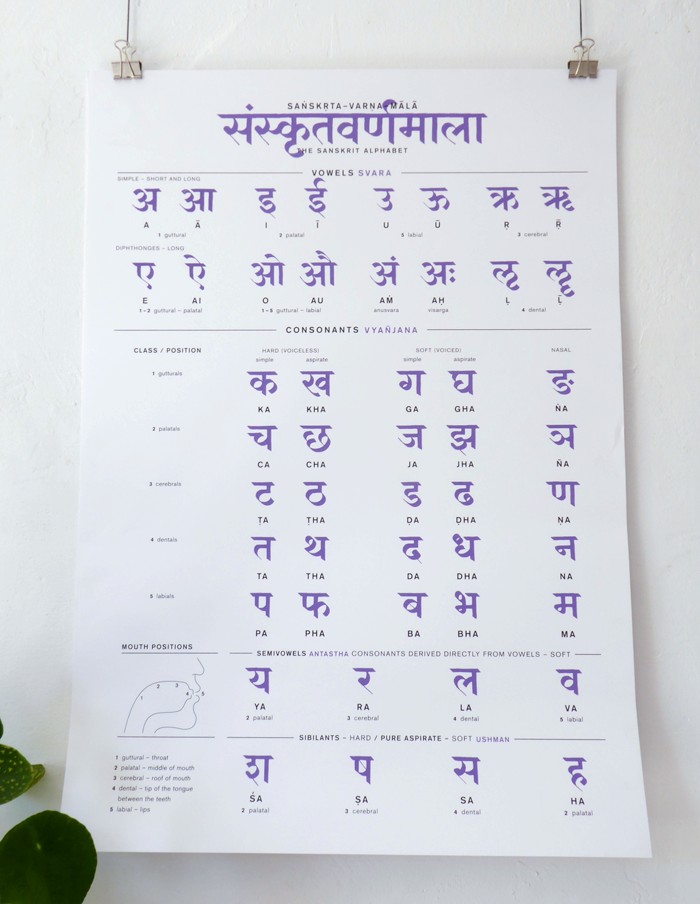 SAṄSKṚTA-VARṆA-MĀLĀ
संस्कृतवर्णमाला
THE SANSKRIT ALPHABET
VOWELS SVARA
SIMPLE – SHORT AND LONG
अ आ इ ई उ ऊ ऋ ॠ
A Ā I Ī U Ū Ṛ Ṝ
1 guttural 2 palatal 5 labial 3 cerebral
DIPHTHONGES – LONG
ए ऐ ओ औ अं अः ऌ ॡ
E AI O AU AṀ AḤ Ḷ Ḹ
1–2 guttural – palatal 1–5 guttural – labial anusvara visarga 4 dental
CONSONANTS VYAÑJANA
CLASS / POSITION HARD (VOICELESS) SOFT (VOICED) NASAL
simple aspirate simple aspirate
1 gutturals क ख ग घ ङ
KA KHA GA GHA ṄA
2 palatals च छ ज झ ञ
CA CHA JA JHA ÑA
3 cerebrals ट ठ ड ढ ण
ṬA ṬHA ḌA ḌHA ṆA
4 dentals त थ द ध न
TA THA DA DHA NA
5 labials प फ ब भ म
PA PHA BA BHA MA
MOUTH POSITIONS
1 2 3 4 5
1 guttural – throat
2 palatal – middle of mouth
3 cerebral – roof of mouth
4 dental – tip of the tongue
between the teeth
5 labial – lips
SEMIVOWELS ANTASTHA CONSONANTS DERIVED DIRECTLY FROM VOWELS – SOFT
य र ल व
YA RA LA VA
2 palatal 3 cerebral 4 dental 5 labial
SIBILANTS – HARD / PURE ASPIRATE – SOFT USHMAN
श ष स ह
ŚA ṢA SA HA
2 palatal 3 cerebral 4 dental 2 palatal